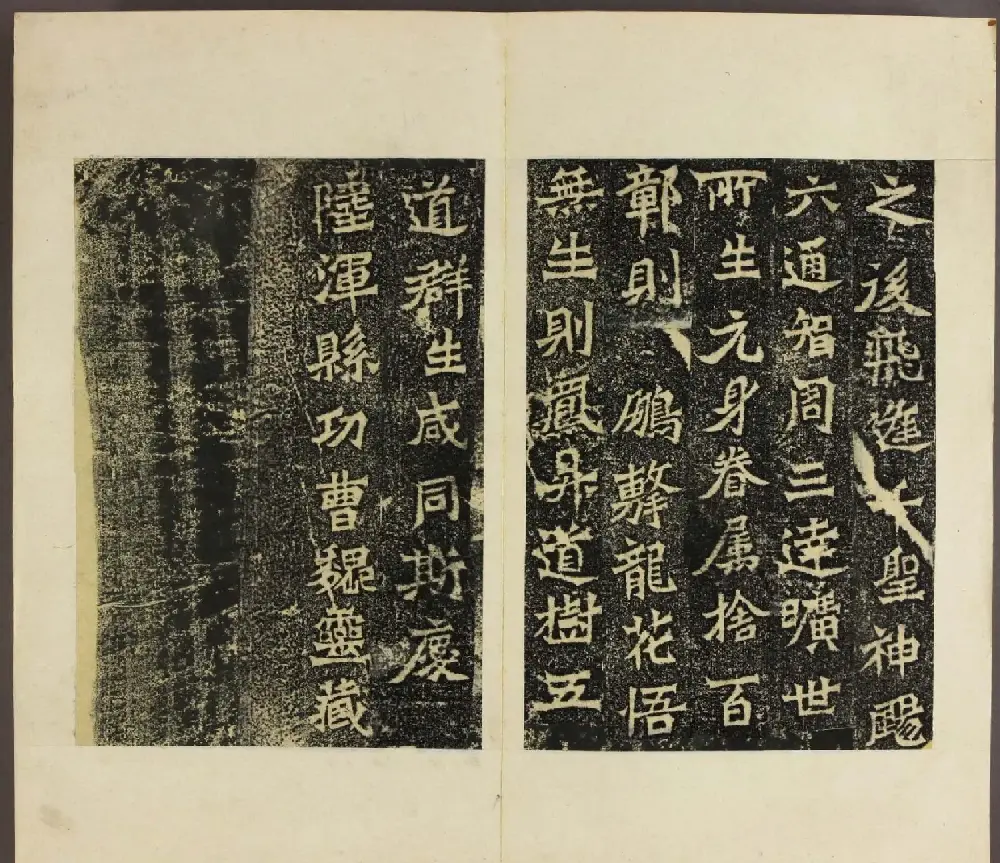 之後飛逢千聖神颺
六通智周三達曠世
所生元身眷属捨百
鄣則鵬擊龍花悟
無生則鳳昇道樹五
道群生咸同斯慶
陸渾縣功曹魏靈藏